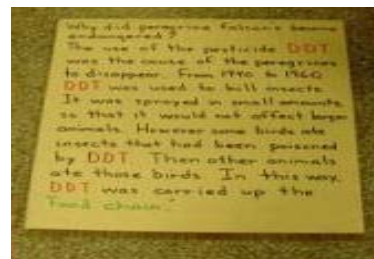 Why did peregrine falcons become
endangered?
The use of the pesticide DDT
was the cause of the peregrines
to disappear. From 1940 to 1960
DDT was used to kill insects.
It was sprayed in small amounts
so that it would not affect larger
animals. However some birds ate
insects that had been poisoned
by DDT. Then other animals
ate those birds. In this way,
DDT was carried up the
food chain.